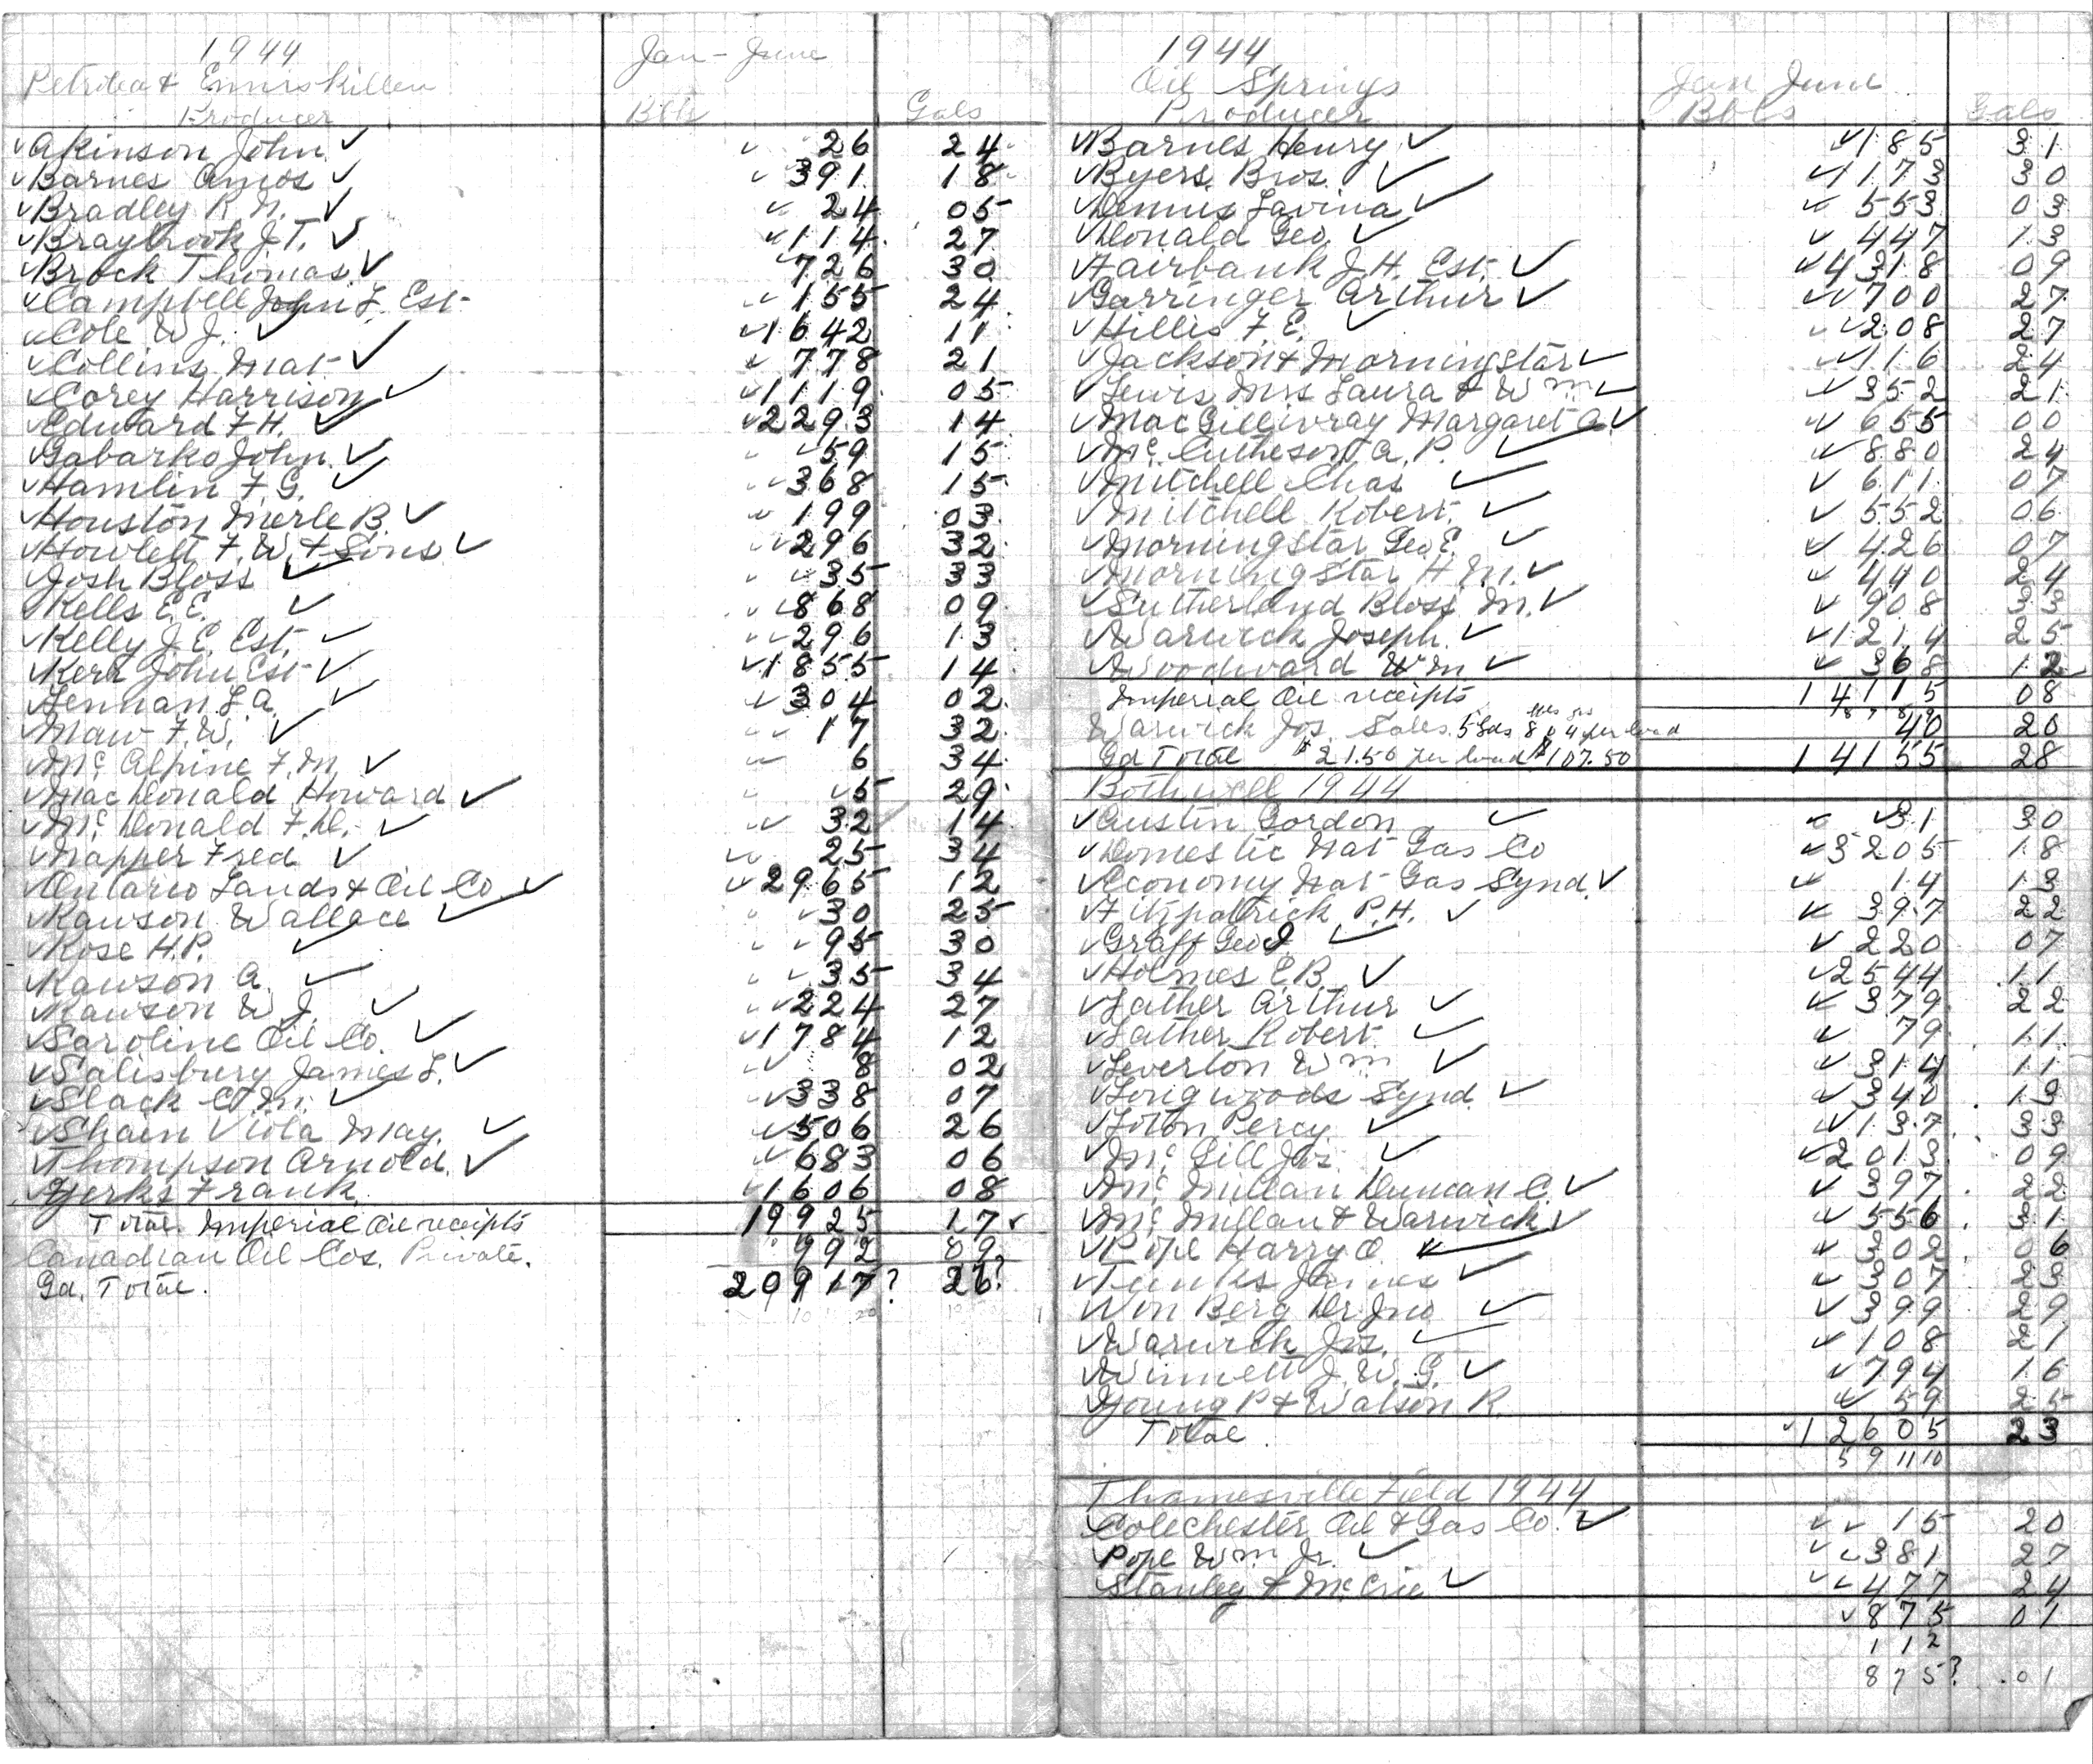 1944
Petrolea & Enniskillen
Jan - June
Producer Bbls Gals
Akinson John 26 24
Barnes Amos 391 18
Bradley R.N. 24 05
Braybrook J.T. 114 27
Brock Thomas 726 30
Campbell John F. Est 155 24
Cole W.J. 1642 11
Collins Mat 778 21
Corey Harrison 1119 05
Edward F.H. 2293 14
Gabarko John 59 15
Hamlin F.G. 368 15
Houston Merle B. 199 03
Howlett F.W. & Sons 296 32
Josh Bloss 35 33
Kells E.E. 868 09
Kelly J.E. Est. 296 13
Kerr John Est 1855 14
Lennan L.A. 304 02
Maw F.W. 17 32
Mc Alpine F.M. 6 34
MacDonald Howard 5 29
Mc Donald F.D. 32 14
Napper Fred 25 34
Ontario Lands & Oil Co. 2965 12
Rawson Wallace 30 25
Rose H.P. 95 30
Rawson A. 35 34
Rawson W.J. 224 27
Saroline Oil Co. 1784 12
Salisbury James L. 8 02
Slack C.M. 338 07
Shain Viola May. 506 26
Thompson Arnold. 683 06
Yerks Frank. 1606 08
Total. Imperial Oil receipts 19925 17
Canadian Oil Cos. Private. 992 09
Gd. Total. 20917? 26?
1944
Oil Springs
Jan June
Producer Bbls Gals
Barnes Henry 185 31
Byers Bros. 1173 30
Dennis Lavina 553 03
Donald Geo. 447 13
Fairbank J.H. Est. 4318 09
Garringer Arthur 700 27
Hillis F.E. 208 27
Jackson & Morningstar 116 24
Lewis Mrs Laura & Wm 352 21
MacGillivray Margaret A. 655 00
Mc Cutheson A.P. 880 24
Mitchell Chas 611 07
Mitchell Robert. 552 06
Morningstar Geo. E. 426 07
Morningstar H.M. 440 24
Sutherland Bloss M. 908 33
Warwick Joseph. 1214 25
Woodward Wm 368 12
Imperial Oil receipts 14115 08
Warwick Jos. Sales. 5 Lds 8 04 per load 40 20
Gd Total $21.50 per load $107.50 14155 28
Bothwell 1944
Austin Gordon 31 30
Domestic Nat Gas Co 3205 18
Economy Nat Gas Synd. 14 13
Fitzpatrick P.H. 397 22
Graff Geo J. 220 07
Holmes E.B. 2544 11
Lather Arthur 379 22
Lather Robert. 79 11
Leverton Wm 314 11
Longwoods Synd. 340 13
Loton Percy 137 33
Mc Gill Jas. 2013 09
Mc Millan Duncan C. 397 22
Mc Millan & Warwick 556 31
Pope Harry O. 302 06
Tunks James 307 23
Von Berg Dr Jno 399 29
Warwick Jos. 108 21
Winnett J.W.G. 794 16
Young P & Watson R. 59 25
Total. 12605 23
5 9 11 10
Thamesville Field 1944
Colechester Oil & Gas Co. 15 20
Pope Wm. Jr. 381 27
Stanley & McCrie 477 24
875 01
1 1 2
875? 01